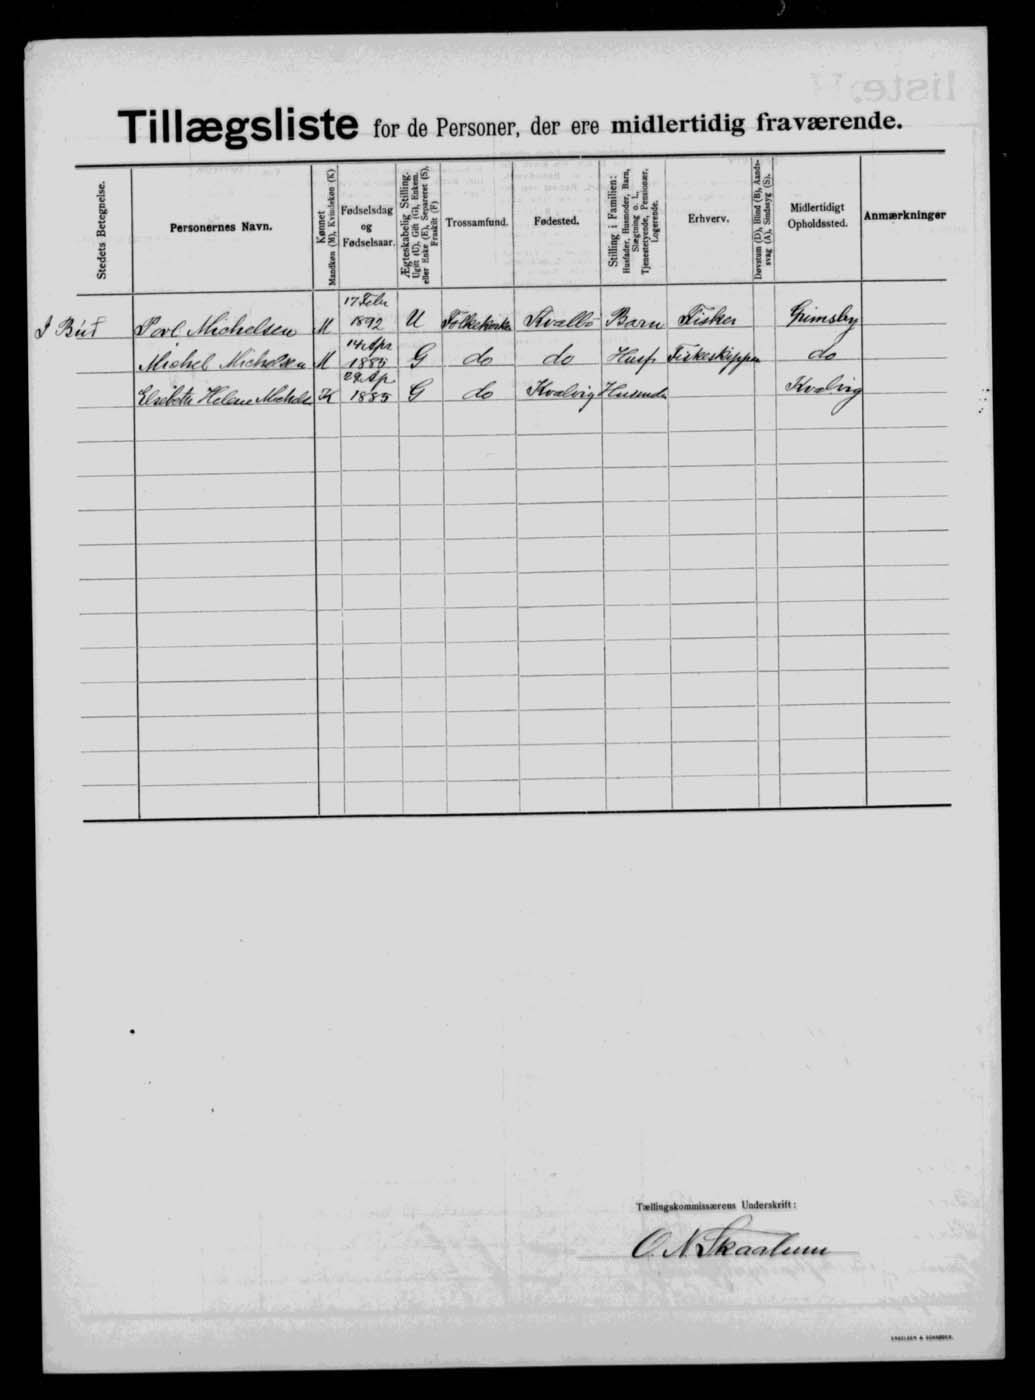 Tillægsliste for de Personer, der ere midlertidig fraværende.
Stedets Betegnelse.
Personernes Navn.
Kønnet
Mandkøn (M), Kvindekøn (K)
Fødselsdag
og
Fødselsaar.
Ægteskabelig Stilling.
Ugift (U), Gift (G), Enkem.
eller Enke (E), Separeret (S),
Fraskilt (F)
Trossamfund.
Fødested.
Stilling i Familien:
Husfader, Husmoder, Barn,
Slægtning o. l.,
Tjenestetyende, Pensionær,
Logerende.
Erhverv.
Døvstum (D), Blind (B), Aands-
svag (A), Sindssyg (S).
Midlertidigt
Opholdssted.
Anmærkninger
17 Febr
Povl Michelsen M 1892 U Folkekirken Kvalbø Barn Fisker Grimsby
14 Apr
Michel Michelsen M 1885 G do do Husf Fiskeskipper do
29 Ap
Elsebeth Helene Michels K 1885 G do Kvalvig Husmdr Kvalvig
Tællingskommissærens Underskrift:
O N Skaalum
ENGELSEN & SCHRØDER.